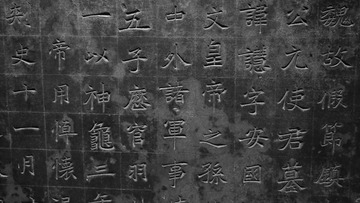 魏故假節鎮
公元使君墓
諱譿字安國
文皇帝之孫
中外諸軍事
五子歷官羽
一以神龜三年
帝用悼懷
史十一月